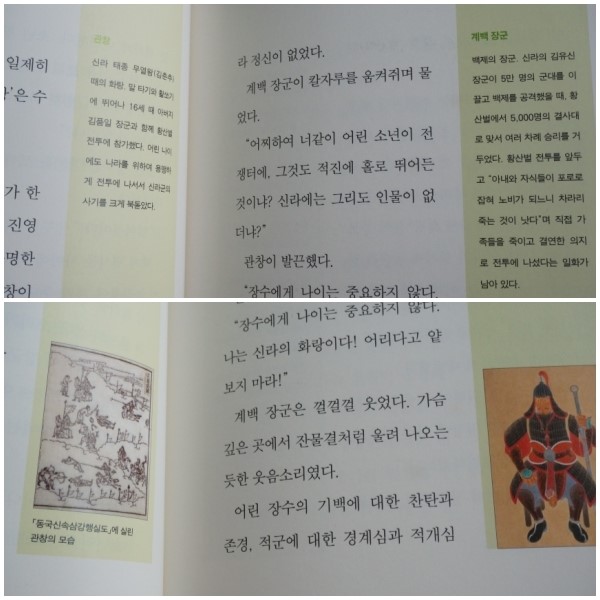 일제히
은 수
가 한
진영
명한
창이
관창
신라 태종 무열왕(김춘추)
때의 화랑. 말 타기와 활쏘기
에 뛰어나 16세 때 아버지
김품일 장군과 함께 황산벌
전투에 참가했다. 어린 나이
에도 나라를 위하여 용맹하
게 전투에 나서서 신라군의
사기를 크게 북돋았다.
라 정신이 없었다.
계백 장군이 칼자루를 움켜쥐며 물
었다.
"어찌하여 너같이 어린 소년이 전
쟁터에, 그것도 적진에 홀로 뛰어든
것이냐? 신라에는 그리도 인물이 없
더냐?"
관창이 발끈했다.
"장수에게 나이는 중요하지 않다.
계백 장군
백제의 장군. 신라의 김유신
장군이 5만 명의 군대를 이
끌고 백제를 공격했을 때, 황
산벌에서 5,000명의 결사대
로 맞서 여러 차례 승리를 거
두었다. 황산벌 전투를 앞두
고 "아내와 자식들이 포로로
잡혀 노비가 되느니 차라리
죽는 것이 낫다"며 직접 가
족들을 죽이고 결연한 의지
로 전투에 나섰다는 일화가
남아 있다.
"장수에게 나이는 중요하지 않다.
나는 신라의 화랑이다! 어리다고 얕
보지 마라!"
계백 장군은 껄껄껄 웃었다. 가슴
깊은 곳에서 잔물결처럼 울려 나오는
듯한 웃음소리였다.
어린 장수의 기백에 대한 찬탄과
존경, 적군에 대한 경계심과 적개심
「동국신속삼강행실도」에 실린
관창의 모습